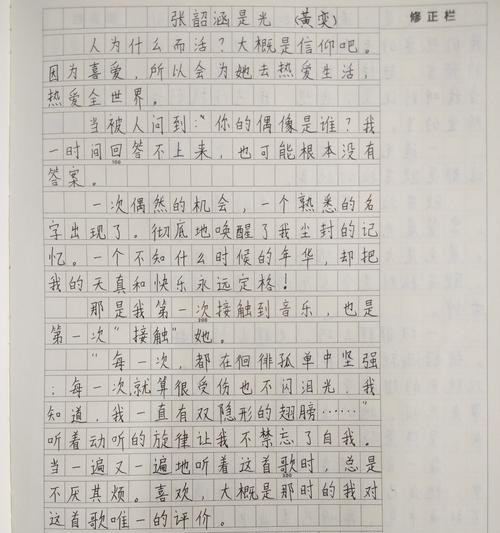 张韶涵是光 (黄奕)
修正栏
人为什么而活?大概是信仰吧。
因为喜爱,所以会为她去热爱生活,
热爱全世界。
当被人问到:“你的偶像是谁?我
一时间回答不上来,也可能根本没有
100
答案。
一次偶然的机会,一个熟悉的名
字出现了。彻底地唤醒了我尘封的记
忆。一个不知什么时候的年华,却把
我的天真和快乐永远定格!
那是我第一次接触到音乐,也是
200
第一次“接触”她。
“每一次,都在徊徘孤单中坚强
:每一次就算很受伤也不闪泪光,我
知道,我一直有双隐形的翅膀……”
听着动听的旋律让我不禁忘了自我。
当一遍又一遍地听着这首歌时,总是
300
不厌其烦。喜欢,大概是那时的我对
这首歌唯一的评价。